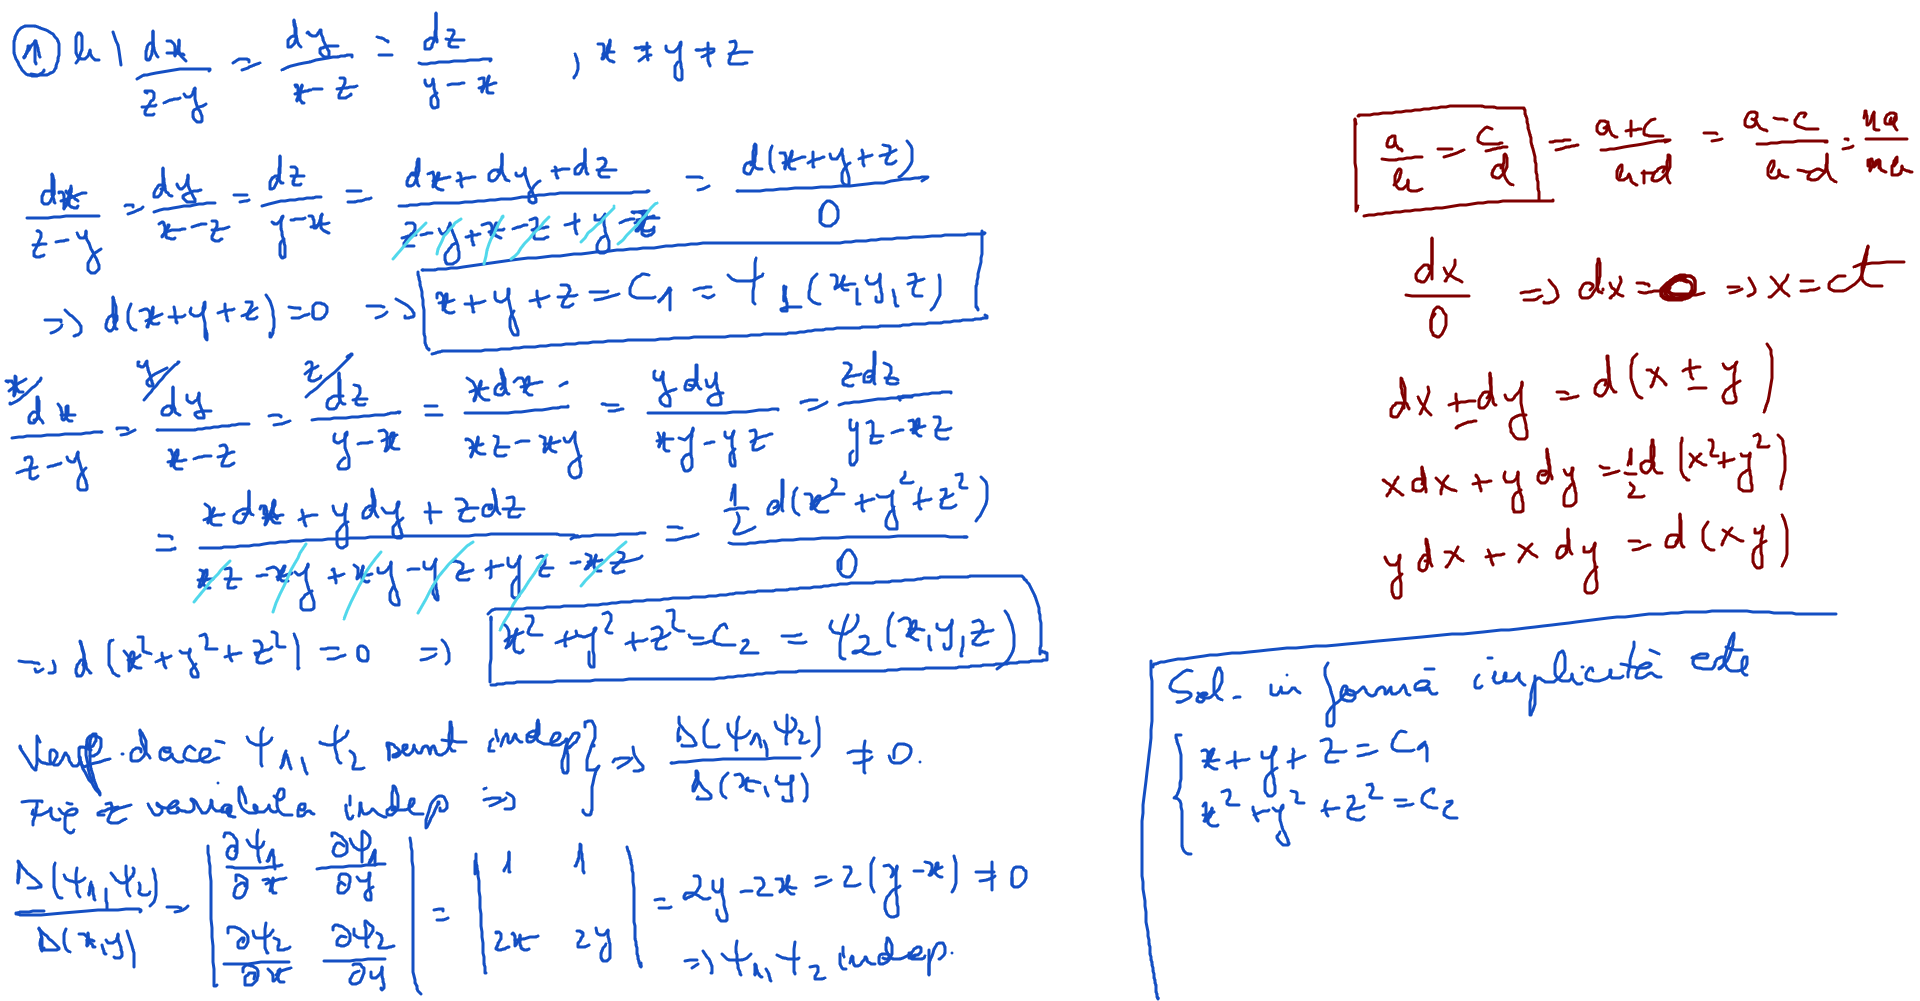 ① b) dx/(z-y) = dy/(x-z) = dz/(y-x) , x ≠ y ≠ z
dx/(z-y) = dy/(x-z) = dz/(y-x) = (dx+dy+dz)/(z-y+x-z+y-x) = d(x+y+z)/0
⇒ d(x+y+z)=0 ⇒ x+y+z = C₁ = Ψ₁(x,y,z)
x/ dx/(z-y) = y/ dy/(x-z) = z/ dz/(y-x) = xdx/(xz-xy) = ydy/(xy-yz) = zdz/(yz-xz)
= (xdx+ydy+zdz)/(xz-xy+xy-yz+yz-xz) = ½d(x²+y²+z²)/0
⇒ d(x²+y²+z²)=0 ⇒ x²+y²+z²=C₂ = Ψ₂(x,y,z)
Verif. dacă Ψ₁, Ψ₂ sunt indep } ⇒ D(Ψ₁,Ψ₂)/D(x,y) ≠ 0.
Fie z variabila indep ⇒
D(Ψ₁,Ψ₂)/D(x,y) = | ∂Ψ₁/∂x ∂Ψ₁/∂y ; ∂Ψ₂/∂x ∂Ψ₂/∂y | = | 1 1 ; 2x 2y | = 2y-2x = 2(y-x) ≠ 0
⇒ Ψ₁, Ψ₂ indep.
a/b = c/d = (a+c)/(b+d) = (a-c)/(b-d) = na/nb
dx/0 ⇒ dx=0 ⇒ x=ct
dx ± dy = d(x ± y)
xdx + ydy = ½d(x²+y²)
ydx + xdy = d(xy)
Sol. în formă implicită este
{ x+y+z = C₁
x²+y²+z² = C₂